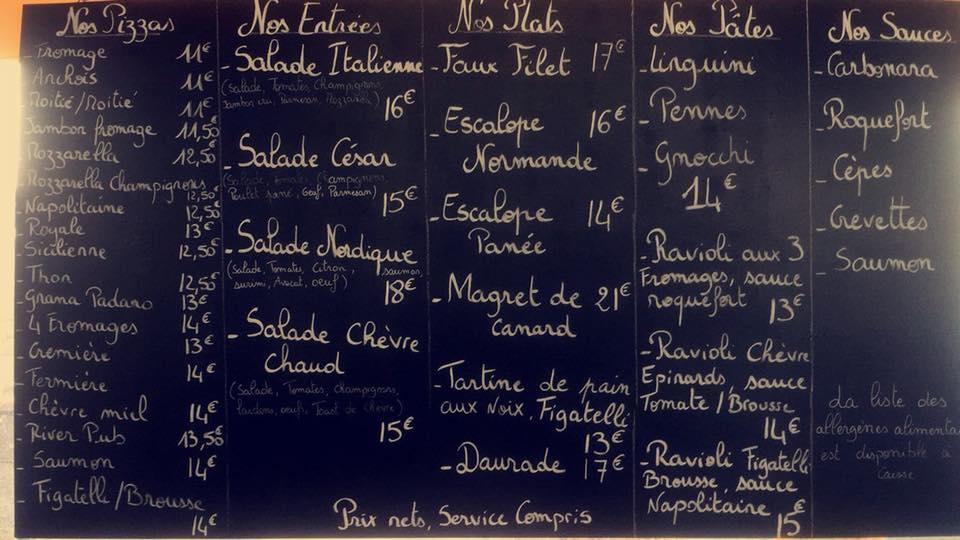 Nos Pizzas
- Fromage 11€
- Anchois 11€
- Moitié/Moitié 11€
- Jambon fromage 11,50€
- Mozzarella 12,50€
- Mozzarella Champignons 12,50€
- Napolitaine 12,50€
- Royale 13€
- Sicilienne 12,50€
- Thon 12,50€
- Grana Padano 13€
- 4 Fromages 14€
- Cremière 13€
- Fermière 14€
- Chèvre miel 14€
- River Pub 13,50€
- Saumon 14€
- Figatelli/Brousse
14€
Nos Entrées
- Salade Italienne
(Salade, Tomates, Champignons,
Jambon cru, Parmesan, Mozzarella)
16€
- Salade César
(Salade, Tomates, Champignons,
Poulet pané, Oeuf, Parmesan)
15€
- Salade Nordique
(Salade, Tomates, Citron, saumon,
surimi, Avocat, oeuf)
18€
- Salade Chèvre
Chaud
(Salade, Tomates, Champignons,
lardons, oeufs, Toast de Chèvre)
15€
Nos Plats
- Faux Filet 17€
- Escalope 16€
Normande
- Escalope 14€
Panée
- Magret de 21€
canard
- Tartine de pain
aux Noix, Figatelli
13€
- Daurade 17€
Nos Pâtes
- Linguini
- Pennes
- Gnocchi
14€
- Ravioli aux 3
Fromages, sauce
roquefort 13€
- Ravioli Chèvre
Epinards, sauce
Tomate/Brousse
14€
- Ravioli Figatelli
Brousse, sauce
Napolitaine 15€
Nos Sauces
- Carbonara
- Roquefort
- Cèpes
- Crevettes
- Saumon
La liste des
allergènes alimentai
est disponible à
Caisse
Prix nets, Service Compris